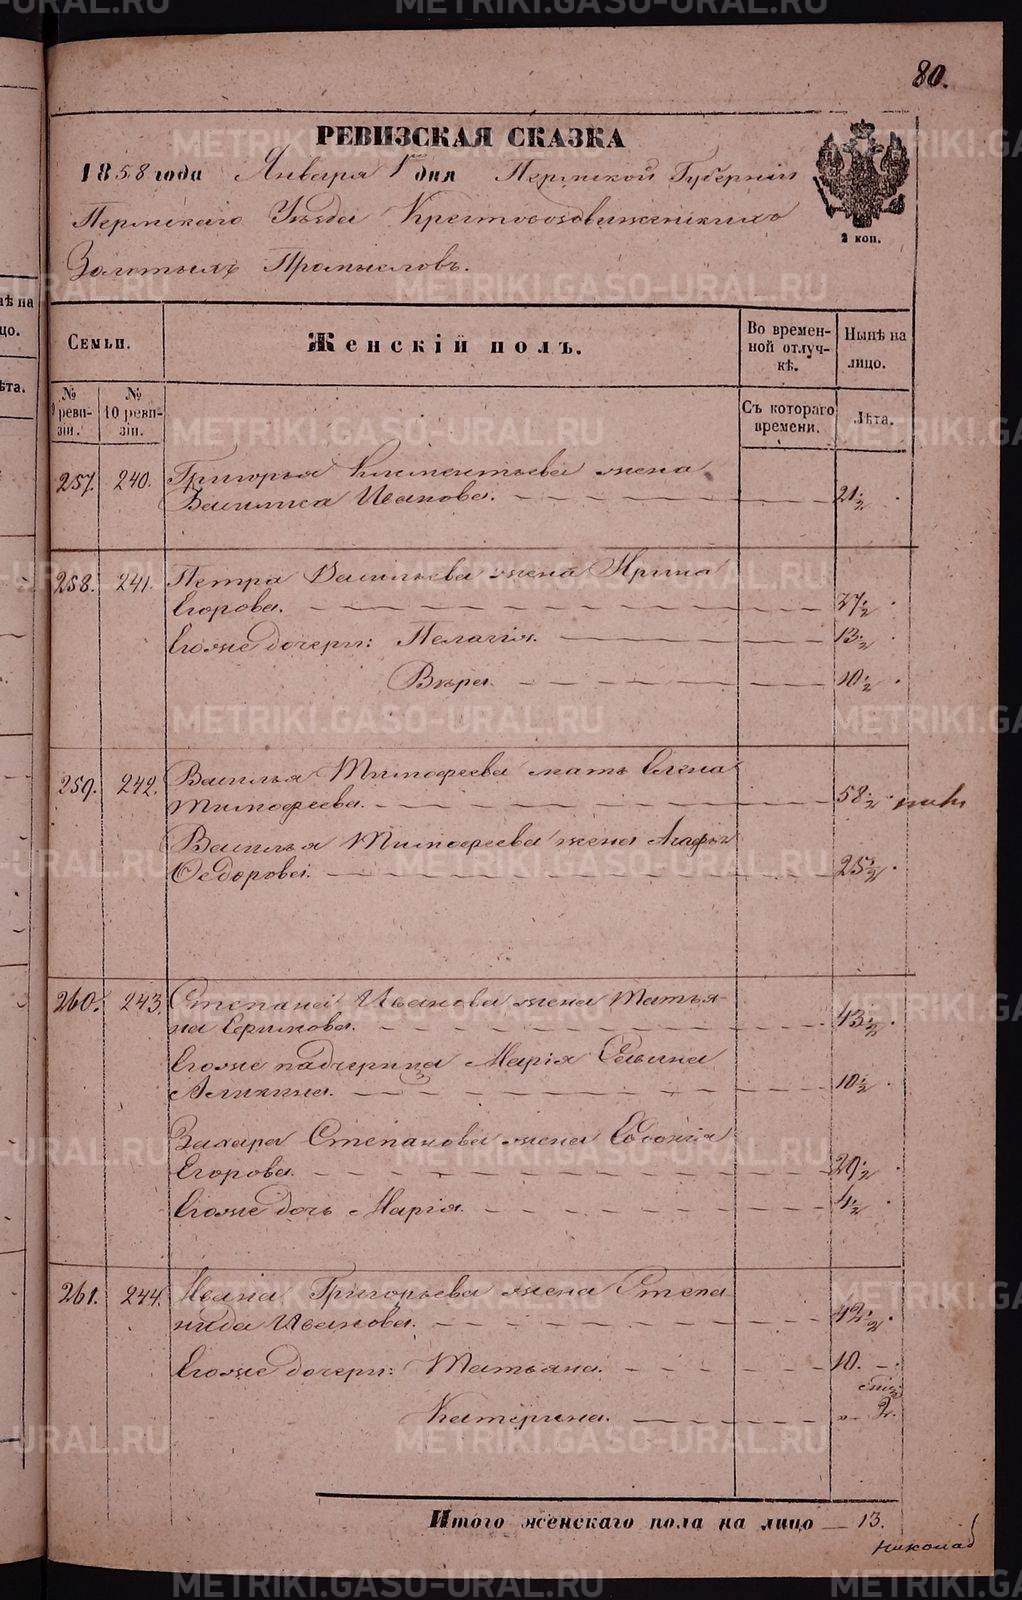 80.
РЕВИЗСКАЯ СКАЗКА
1858 года Января 1го дня Пермской Губерніи
Пермскаго Уѣзда Крестовоздвиженскихъ
Золотыхъ Промысловъ.
2 коп.
Семьи.
Женскій полъ.
Во времен-
ной отлуч-
кѣ.
Нынѣ на
лицо.
№
9 реви-
зіи.
№
10 реви-
зіи.
Съ котораго
времени.
Лѣта.
257. 240. Григорья Климентьева жена
Василиса Иванова. 21½
258. 241. Петра Васильева жена Ирина
Егорова. 37½
Егоже дочери: Пелагія. 13½
Вѣра. 10½
259. 242. Василья Тимофеева мать Елена
Тимофеева. 58½
Василья Тимофеева жена Агафья
Ѳедорова. 25½
260. 243. Степана Иванова жена Татья-
на Ефимова. 43½
Егоже падчерица Марія
10½
Захара Степанова жена Евдокія
Егорова. 20½
Егоже дочь Марія. 4½
261. 244. Ивана Григорьева жена Степа
нида Иванова. 42½
Егоже дочери: Татьяна. 10.
Катерина. 2.
Итого женскаго пола на лицо 13.
Николай
METRIKI.GASO-URAL.RU